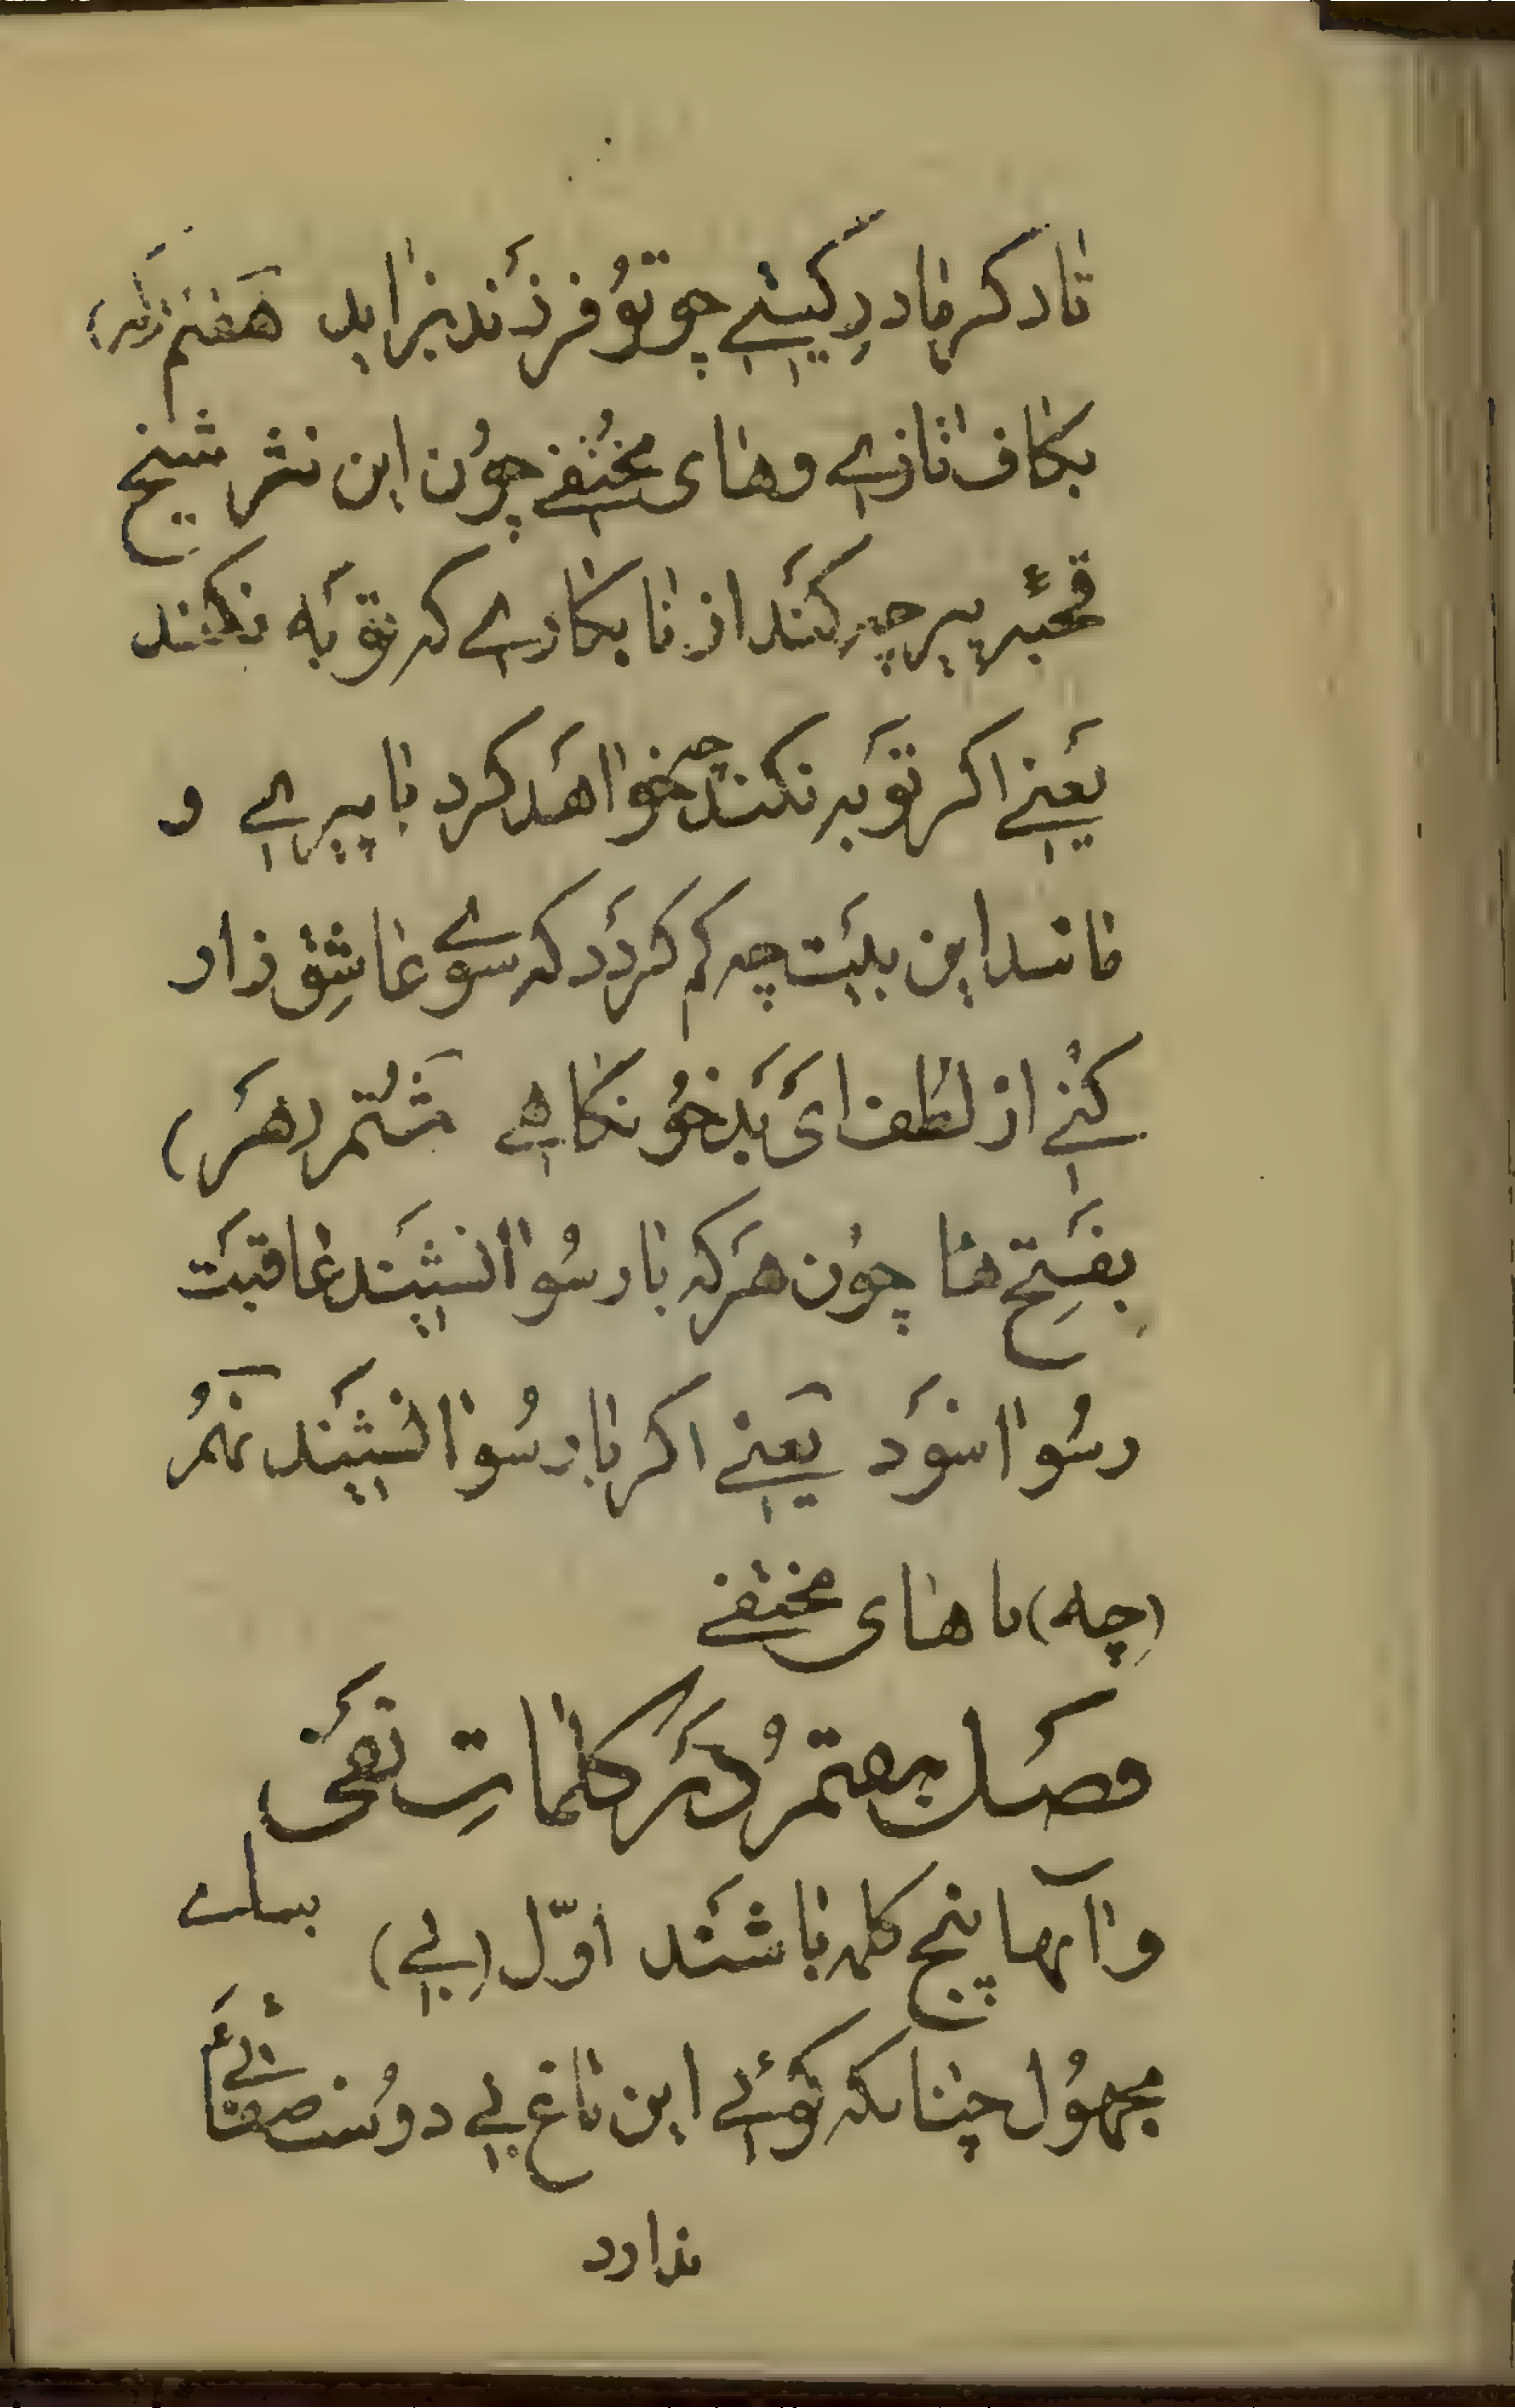 تا دکر مادرِ گیتے چو تو فرزند بزاید هفتم (که)
بکاف تازے وهای مختفے چون این نثر شیخ
قحبهٔ پیر چه کند از نابکارے که توبه نکند
یعنے اکر توبه نکند چه خواهد کرد با پیرے و
مانند این بیت چه کم کردد که سوے عاشق زار
کنے از لطف ای بدخو نکاهے هشتم (هر)
بفتح ها چون هر که با رسوا نشیند عاقبت
رسوا شود یعنے اکر با رسوا نشیند نهم
(چه) با های مختفے
فصل هفتم در کلمات نفی
و آنها پنج کلمه باشند اوّل (بے) بیاے
مجهول چنانکه کوئے این باغ بے دوست صفائے
ندارد